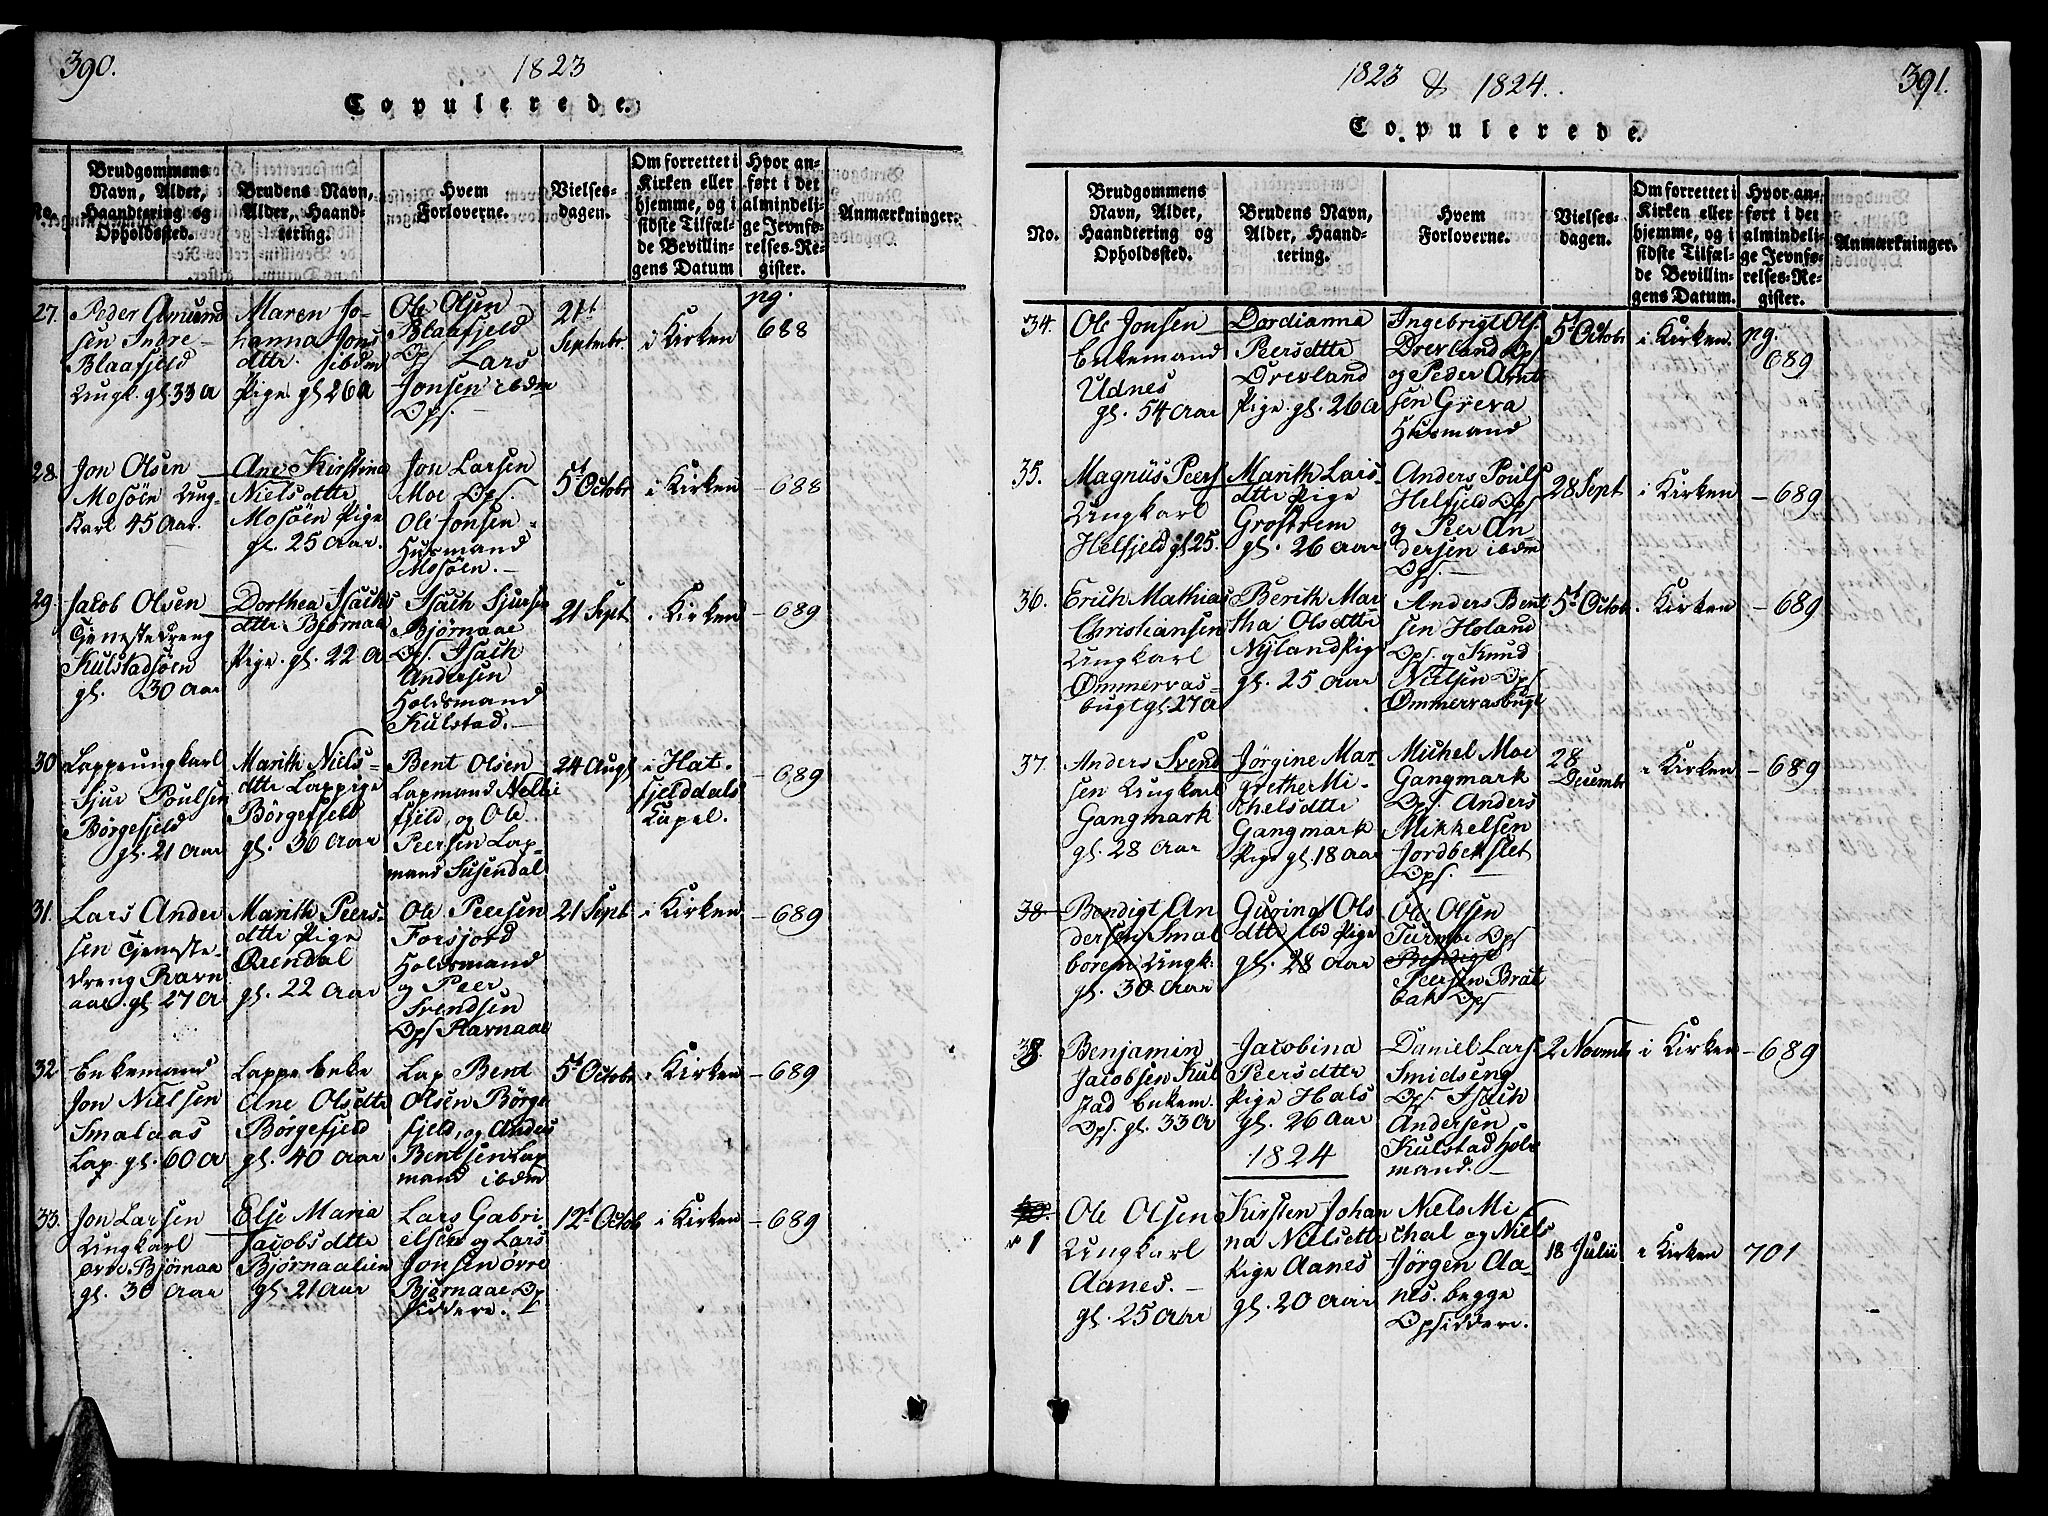 390.
1823
Copulerede.
No.
Brudgommens
Navn, Alder,
Haandtering og
Opholdssted.
Brudens Navn,
Alder, Haand-
tering.
Hvem
Forloverne.
Vielses-
dagen.
Om forrettet i
Kirken eller
hjemme, og i
sidste Tilfæl-
de Bevillin-
gens Datum
Hvor an-
ført i det
almindeli-
ge Jevnfø-
relses-Re-
gister.
Anmærkninger.
27.
Peder Amund
sen Indre-
Blaafjeld
Ungk. gl. 33 A
Maren Jo-
hanna Jons
dttr. ibdm
Pige gl 26 a
Ole Olsen
Blaafjeld
Ops Lars
Jonsen ibdm
Ops.
21t
Septembr.
i Kirken
pg.
688
28.
Jon Olsen
Mosöen Ung-
karl 45 Aar.
Ane Kirstina
Nielsdttr
Mosöen Pige
gl. 25 Aar.
Jon Larsen
Moe Ops.
Ole Jonsen
Husmand
Mosöen.
5t Octobr
i Kirken
- 688
29.
Jacob Olsen
Tjenestedreng
Kulstadsöen
gl. 30 Aar
Dorthea Isachs
dttr Björnaae
Pige. gl. 22 A
Isach Sjursen
Björnaae
Ops. Isach
Andersen
Holdsmand
Kulstad.
21 Sept
i Kirken
- 689
30
Lappeungkarl
Sjur Poulsen
Börgefjeld
gl. 21 Aar
Marith Niels-
dttr Lappige
Börgefjeld
gl. 36 Aar
Bent Olsen
Lapmand
fjeld, og Ole
Peersen Lap-
mand Susendal
24 Augs
i Hat-
fjelddals
Kapel.
- 689
31.
Lars Ander
sen Tjeneste-
dreng Ravn
aae. gl. 27 A
Marith Peers-
dttr Pige
Ørendal
gl. 22 Aar
Ole Peersen
Forsjord
Holdsmand
og Peer
Svendsen
Ops Ravnaae
21 Sept
i Kirken
- 689
32
Enkemand
Jon Nielsen
Smalaas
Lap. gl. 60 A
Lappe Enke
Ane Olsdttr
Börgefjeld
gl. 40 Aar
Lap Bent
Olsen Börge
fjeld, og Andes
Bentsen Lap
mand ibdm
5t Octobr
i Kirken
- 689
33.
Jon Larsen
Ungkarl
øvre Björnaa
gl. 30 Aar
Else Maria
Jacobsdttr
Björnaalien
gl. 21 Aar
Lars Gabri
elsen og Lars
Jonsen övre
Björnaae Op
siddere.
12t Octob
i Kirken
- 689
1823 & 1824.
391.
Copulerede.
No.
Brudgommens
Navn, Alder,
Haandtering og
Opholdssted.
Brudens Navn,
Alder, Haand-
tering.
Hvem
Forloverne.
Vielses-
dagen.
Om forrettet i
Kirken eller
hjemme, og i
sidste Tilfæl-
de Bevillin-
gens Datum.
Hvor an-
ført i det
almindeli-
ge Jevnfø-
relses-Re-
gister.
Anmærkninger.
34.
Ole Jonsen
Enkemand
Udnes
gl. 54 Aar
Dordianna
Peersdttr
Drevland
Pige. gl. 26 A
Ingebrigt Ols.
Drevland Ops
og Peder Arnt
sen Greva
Husmand
5t Octobr
i Kirken.
pg.
689
35.
Magnüs Peers
Ungkarl
Helfjeld gl 25.
Marith Lars-
dttr Pige
Grostrem
gl. 26 Aar
Anders Pouls
Helfjeld Ops
og Peer An
dersen ibdm
Ops.
28 Sept
i Kirken
- 689
36.
Erich Mathias
Christiansen
Ungkarl
Ømmervas-
bugt gl. 27 A
Berith Mar
tha Olsdttr
Nÿland Pig
gl. 25 Aar
Anders Bent
sen Holand
Ops. og Knud
Nielsen Ops
Ømmervasbugt
5t Octob
i Kirken
- 689
37.
Anders Svend
sen Ungkarl
Gangmark
gl. 28 Aar
Jörgine Mar-
grethe Mi-
chelsdttr
Gangmark
Pige gl. 18 Aar
Michel Moe
Gangmark
Ops. Anders
Mikkelsen
Jordbekslet
Ops.
28
Decembr
i Kirken
- 689
38.
Bendigt An
dersen Smal
borem Ungk.
gl. 30 Aar
Gurina Ols
dttr ibd Pige
gl. 28 Aar
Ole Olsen
Turmoe Ops
Bendigt
Peersen Brat
bak Ops
38.
Benjamin
Jacobsen Kul
stad Enkem.
Ops. gl. 33 A
Jacobina
Peersdttr
Pige Hals
gl. 26 Aar
Daniel Lars
Smidseng
Ops. Isach
Andersen
Kulstad Hol
mand.
2 Novmb
i Kirken
- 689
1824
1
Ole Olsen
Ungkarl
Aanes.
gl. 25 Aar
Kirsten Johan
na Nielsdttr
Pige Aanes
gl. 20 Aar
Niels Mi
chal og Niels
Jörgen Aa-
nes. begge
Opsiddere.
18 Julii
i Kirken
701